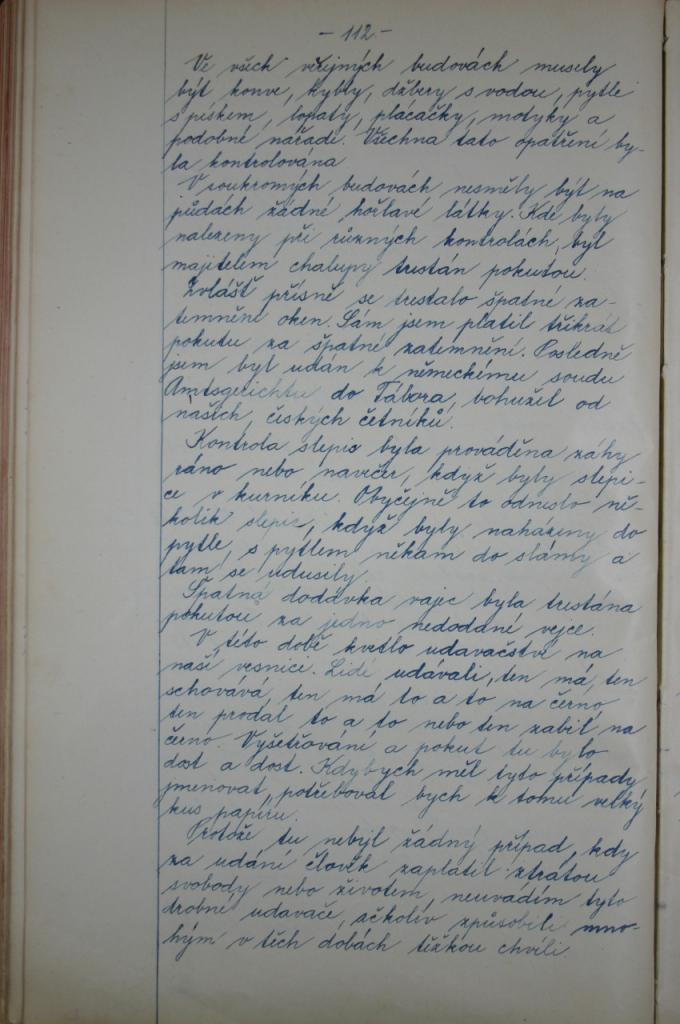 - 112 -
Ve všech veřejných budovách musely
být konve, kybly, džbery s vodou, pytle
s pískem, lopaty, plácačky, motyky a
podobné nářadí. Všechna tato opatření by-
la kontrolována
V soukromých budovách nesměly být na
půdách žádné hořlavé látky. Kde byly
nalezeny při různých kontrolách, byl
majitelem chalupy trestán pokutou.
Zvlášť přísně se trestalo špatné za-
temnění oken. Sám jsem platil třikrát
pokutu za špatné zatemnění. Posledně
jsem byl udán k německému soudu
Amtsgerichtu do Tábora, bohužel od
našich, českých četníků.
Kontrola slepic byla prováděna záhy
ráno nebo navečer, když byly slepi-
ce v kurníku. Obyčejně to odneslo ně-
kolik slepic, když byly naházeny do
pytle, s pytlem někam do slámy a
tam se udusily.
Špatná dodávka vajec byla trestána
pokutou za jedno nedodané vejce.
V této době kvetlo udavačství na
naší vesnici. Lidé udávali, ten má, ten
schovává, ten má to a to na černo,
ten prodal to a to nebo ten zabil na
černo. Vyšetřování a pokut tu bylo
dost a dost. Kdybych měl tyto případy
jmenovat, potřeboval bych k tomu velký
kus papíru.
Protože tu nebyl žádný případ, kdy
za udání člověk zaplatil ztrátou
svobody nebo životem, neuvádím tyto
drobné udavače, ačkoliv způsobili mno-
hým v těch dobách těžkou chvíli.